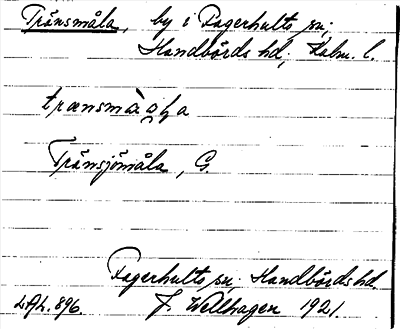 Tränsmåla, by i Fagerhults sn,
Handbörds hd, Kalm. l.
trænsmà̱ọḷa
Tränsjömåla, G.
Fagerhults sn, Handbörds hd.
LAL. 896. J. Wellhagen 1921.